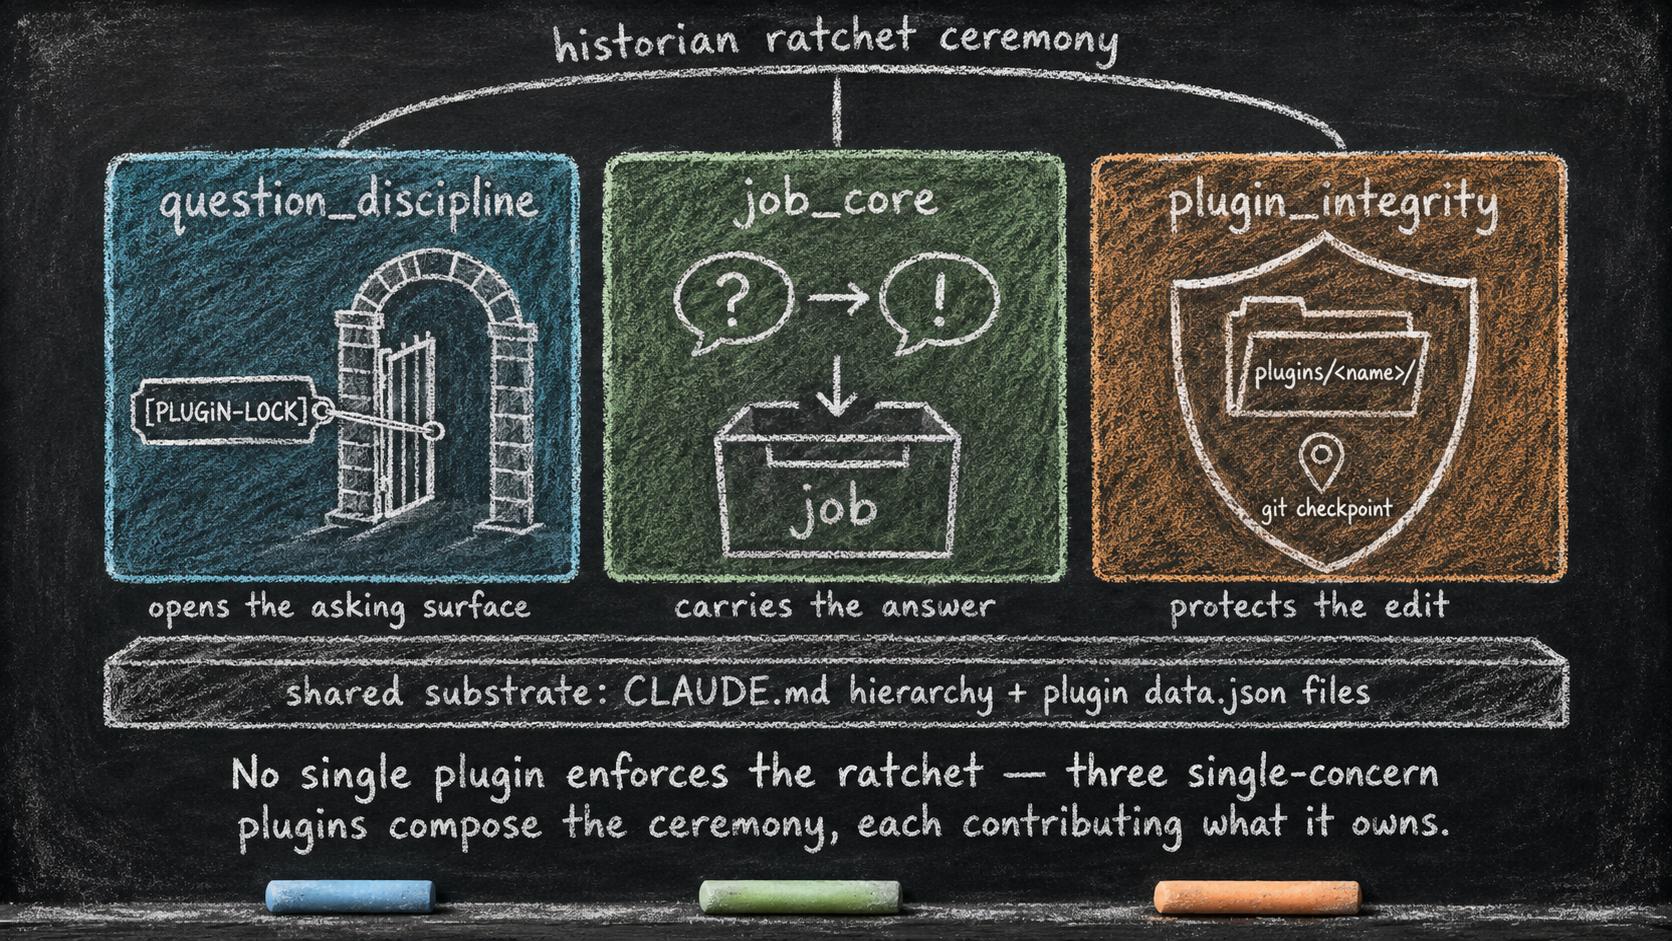 historian ratchet ceremony
question_discipline
[PLUGiN-LOCK]
opens the asking surface
job_core
?
!
job
carries the answer
plugin_integrity
plugins/<name>/
git checkpoint
protects the edit
shared substrate: CLAUDE.md hierarchy + plugin data.json files
No single plugin enforces the ratchet — three single-concern
plugins compose the ceremony, each contributing what it owns.